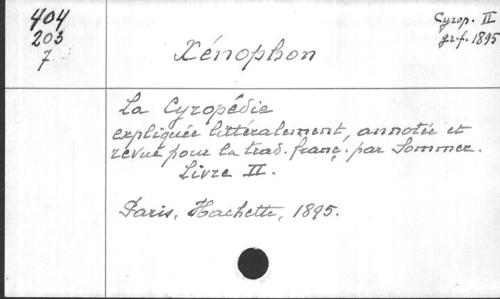 404
203
7
Cyrop. II
gr.f. 1895
Xénophon
La Cyropédie
expliquée littéralement, annotée et
revue pour la trad. franç. par Sommer.
Livre II.
Paris, Hachette, 1895.